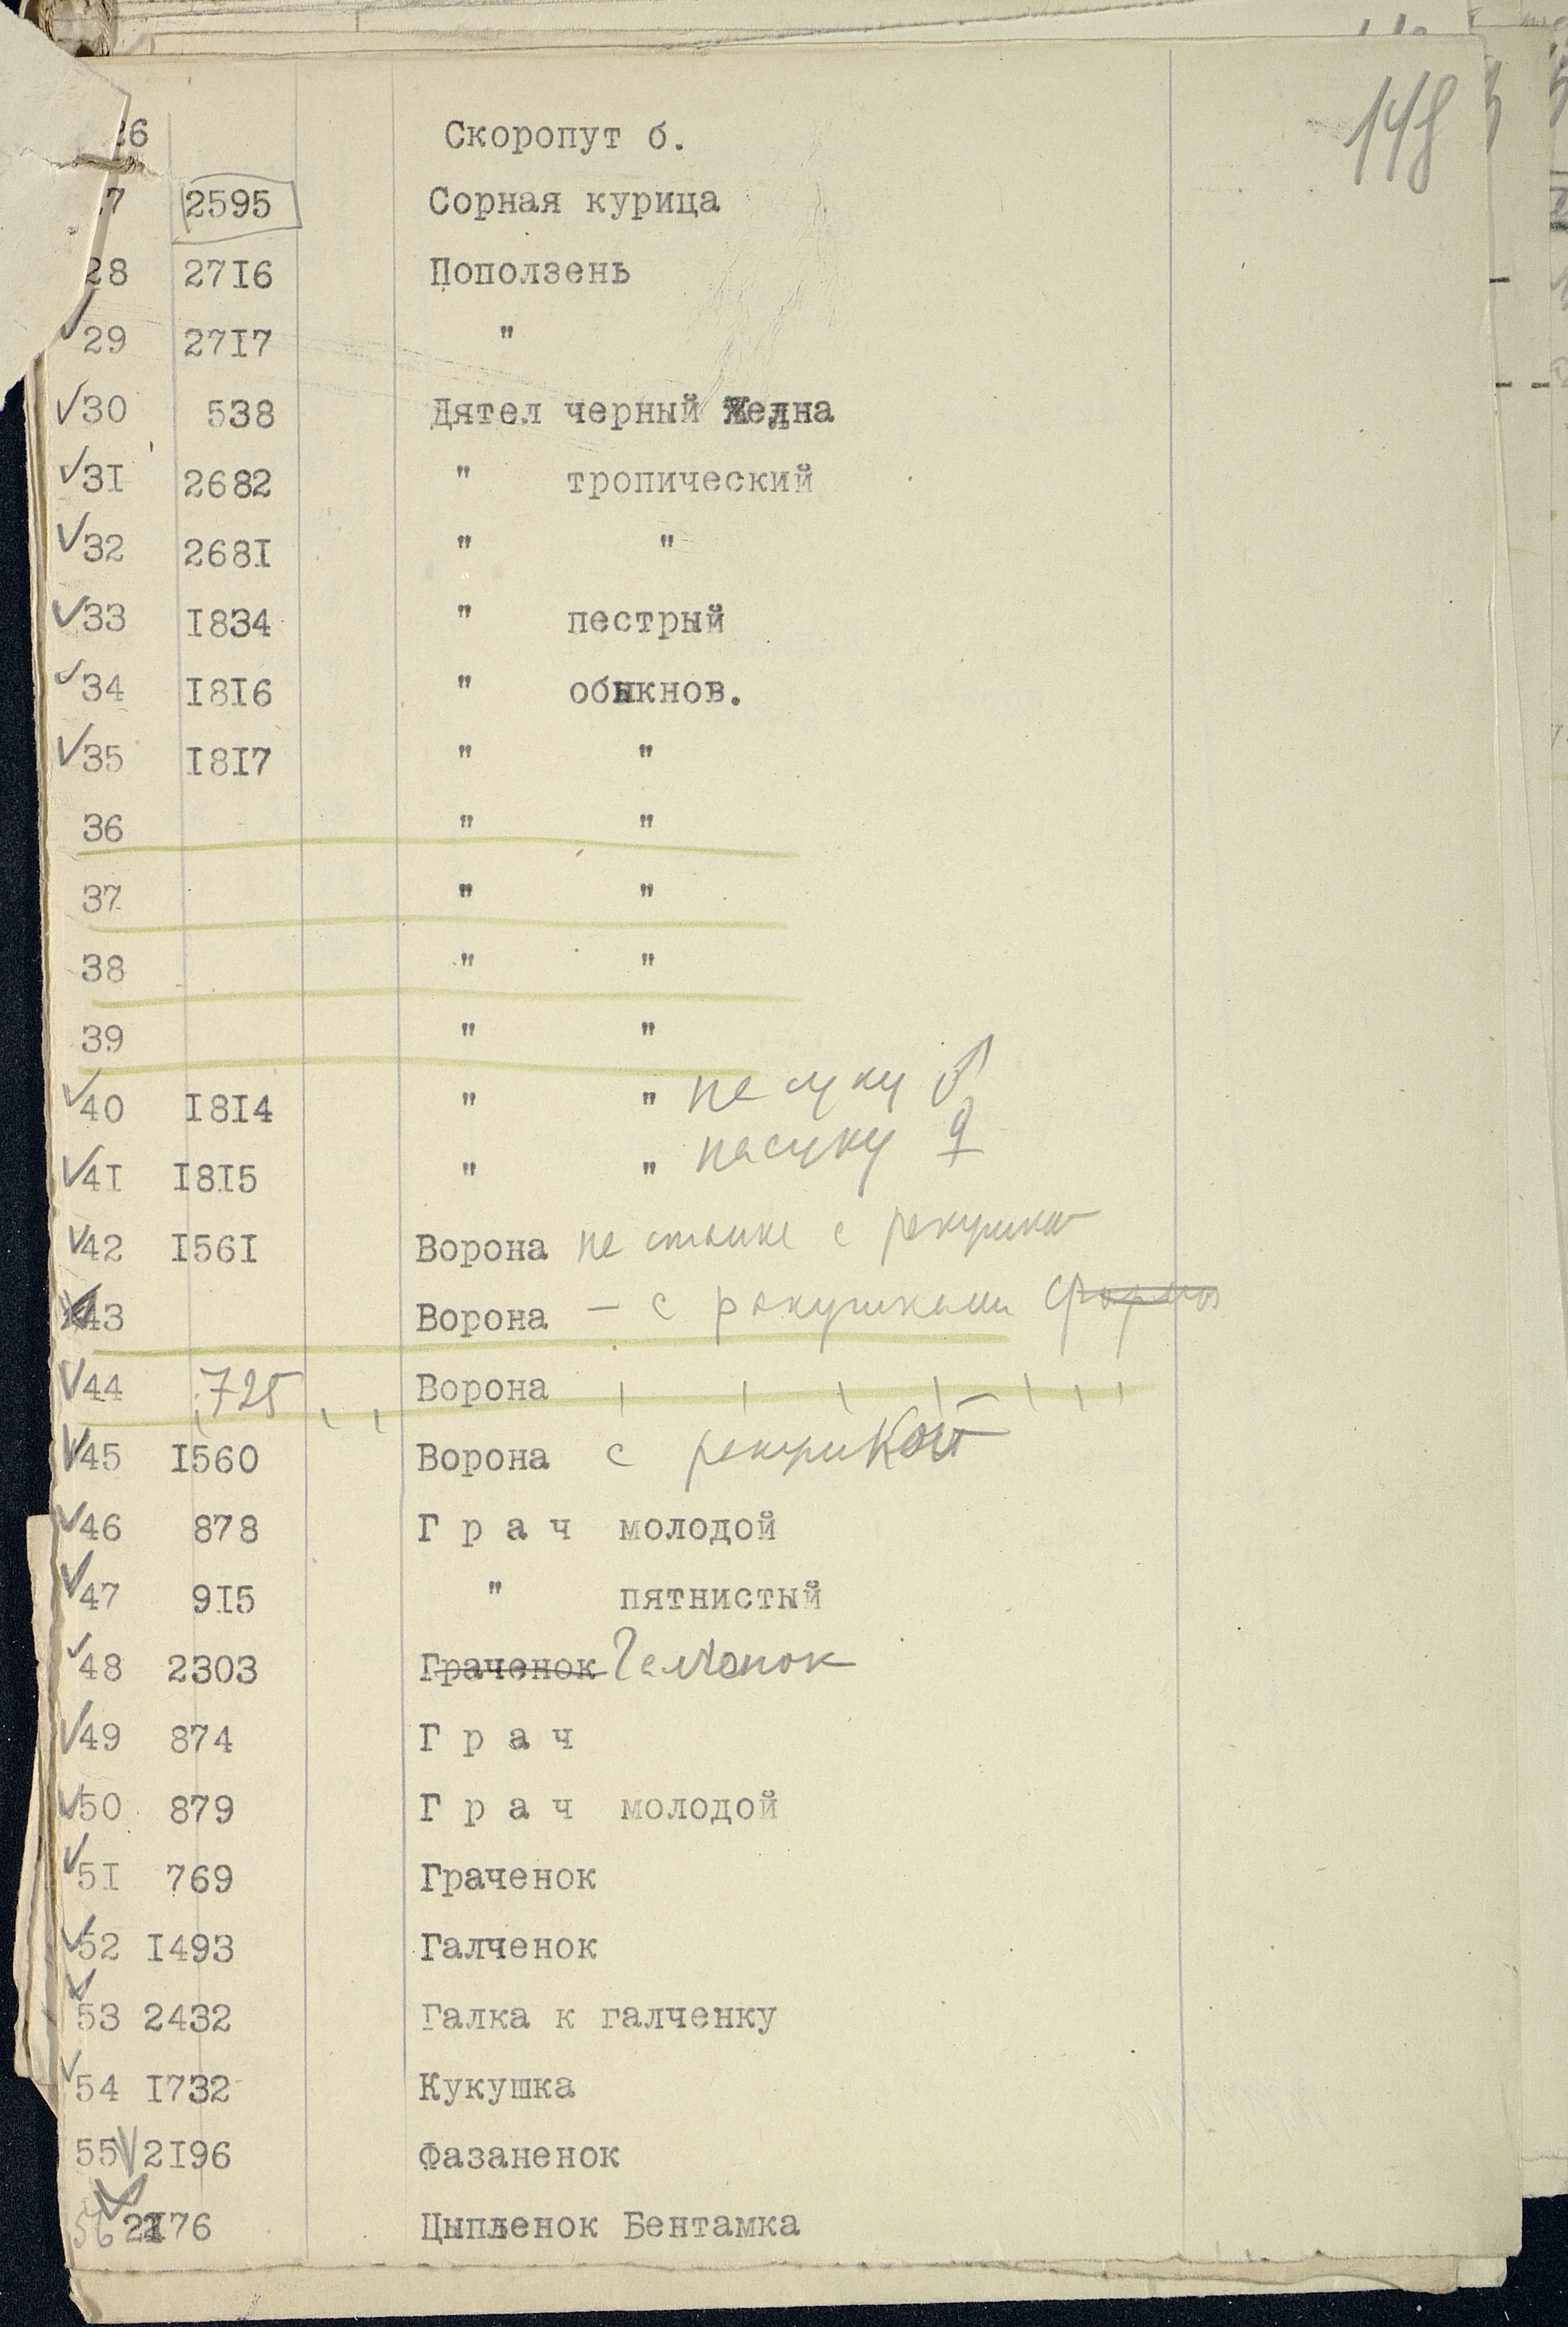 148
26 Скоропут б.
7 2595 Сорная курица
28 2716 Поползень
29 2717 "
✓30 538 Дятел черный Желна
✓31 2682 " тропический
✓32 2681 " "
✓33 1834 " пестрый
✓34 1816 " обыкнов.
✓35 1817 " "
36 " "
37 " "
38 " "
39 " "
✓40 1814 " " на суку ♂
✓41 1815 " " на суку ♀
✓42 1561 Ворона на с
43 Ворона — с ракушками
✓44 725 Ворона
✓45 1560 Ворона с ракушкой
✓46 878 Грач молодой
✓47 915 " пятнистый
✓48 2303 Граченок Галчонок
✓49 874 Грач
✓50 879 Грач молодой
✓51 769 Граченок
✓52 1493 Галченок
✓53 2432 Галка к галченку
✓54 1732 Кукушка
55✓ 2196 Фазаненок
56✓ 2176 Цыпленок Бентамка